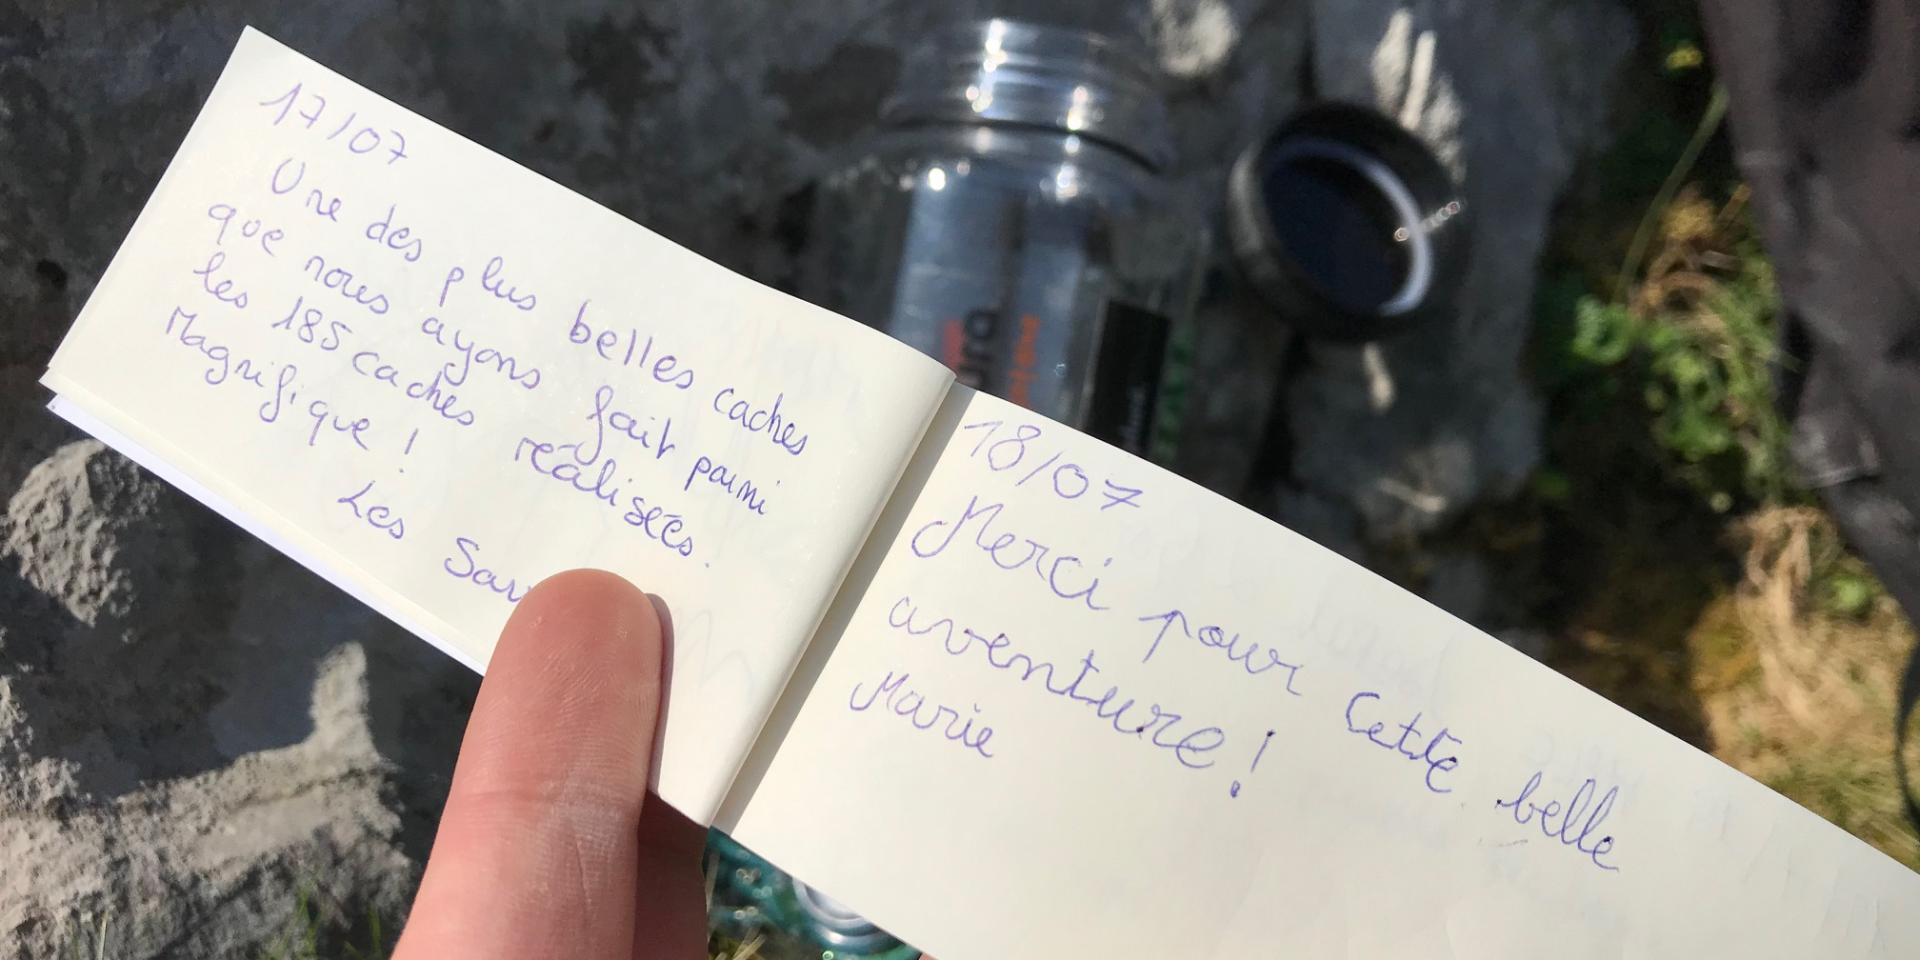 17/07
Une des plus belles caches
que nous ayons fait parmi
les 185 caches réalisées.
Magnifique !
Les
18/07
Merci pour cette belle
aventure !
Marie
ura